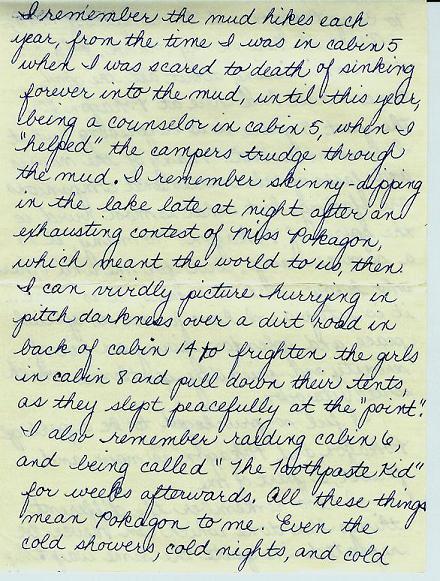 I remember the mud hikes each
year, from the time I was in cabin 5
when I was scared to death of sinking
forever into the mud, until this year,
being a counselor in cabin 5, when I
"helped" the campers trudge through
the mud. I remember skinny-dipping
in the lake late at night after an
exhausting contest of Miss Pokagon,
which meant the world to us, then.
I can vividly picture hurrying in
pitch darkness over a dirt road in
back of cabin 14 to frighten the girls
in cabin 8 and pull down their tents,
as they slept peacefully at the "point".
I also remember raiding cabin 6,
and being called "The Toothpaste Kid"
for weeks afterwards. All these things
mean Pokagon to me. Even the
cold showers, cold nights, and cold